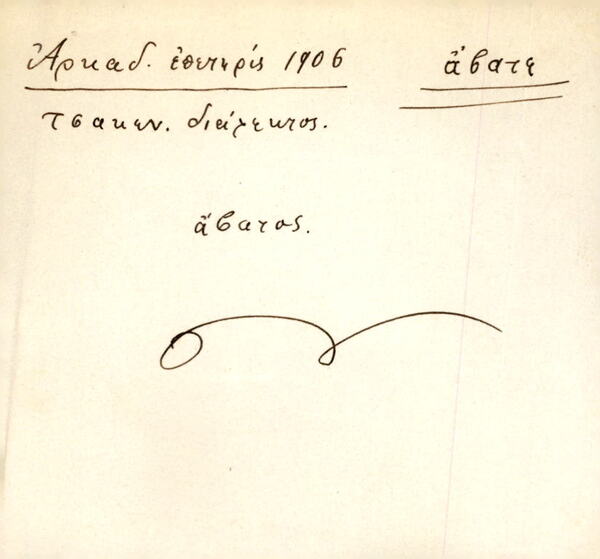 Ἀρκαδ. ἐπετηρίς 1906
ἄβατε
τσακων. διάλεκτος.
ἄβατος.